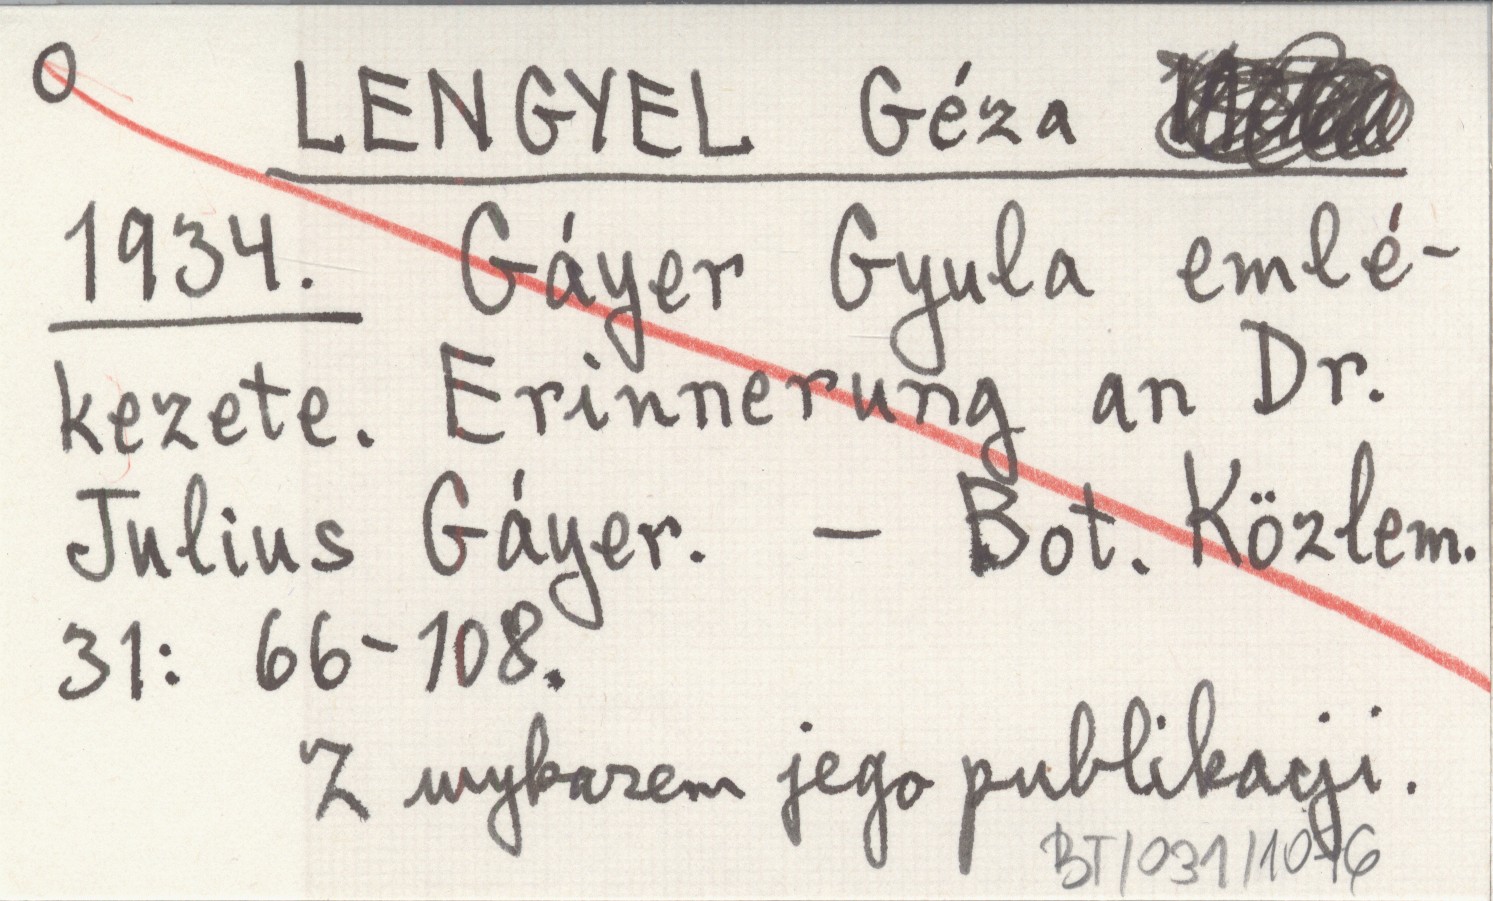 O LENGYEL Géza
1934. Gáyer Gyula emlé-
kezete. Erinnerung an Dr.
Julius Gáyer. – Bot. Közlem.
31: 66-108.
Z wykazem jego publikacji.
BT/031/1046